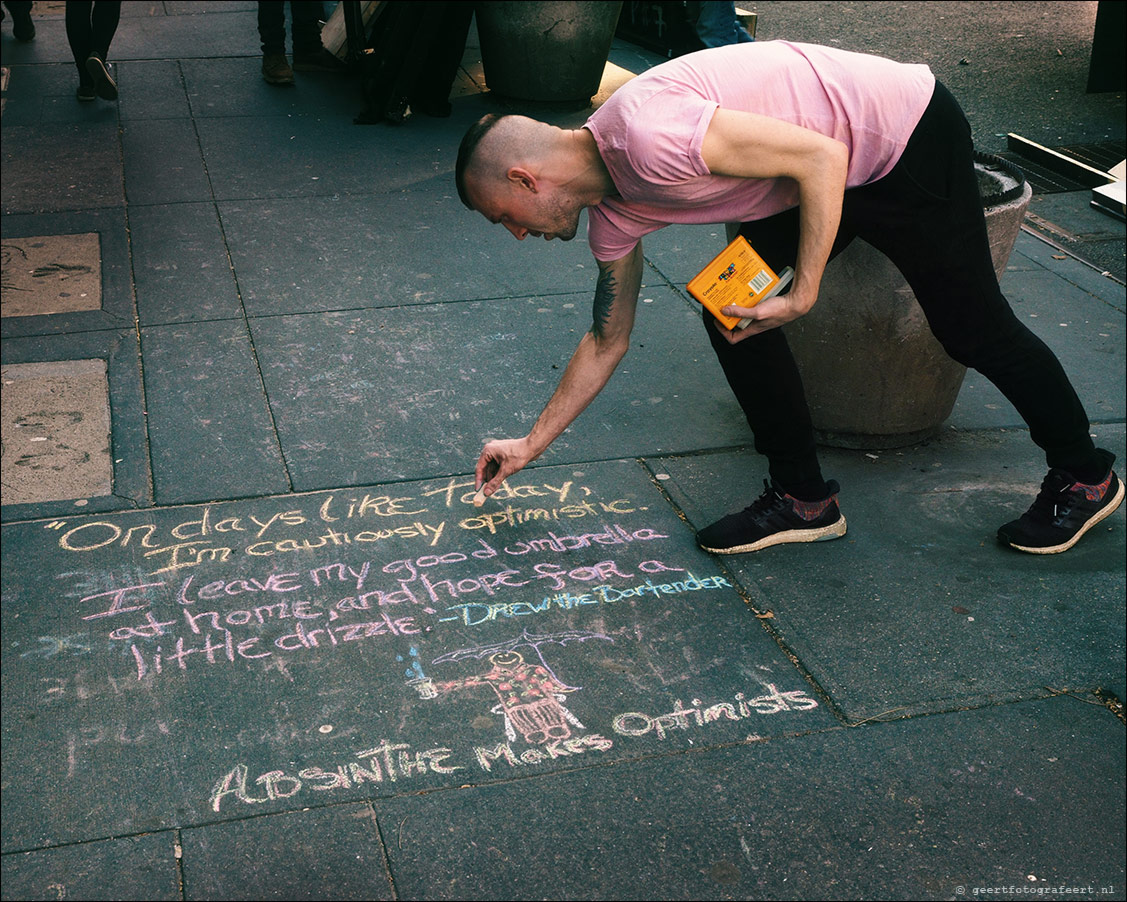 "On days like Today,
I'm cautiously optimistic.
I leave my good umbrella
at home, and hope for a
little drizzle." -Drew the Bartender
Absinthe Makes Optimists
Crayola
© geertfotografeert.nl